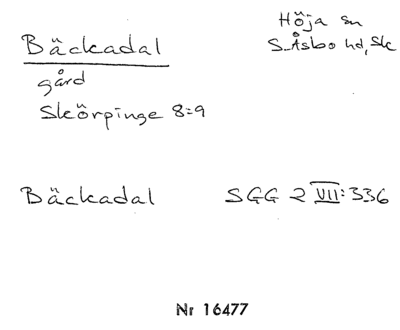 Bäckadal
Höja sn
S.Åsbo hd, Sk
gård
Skörpinge 8:9
Bäckadal SGG 2 VII:336
Nr 16477